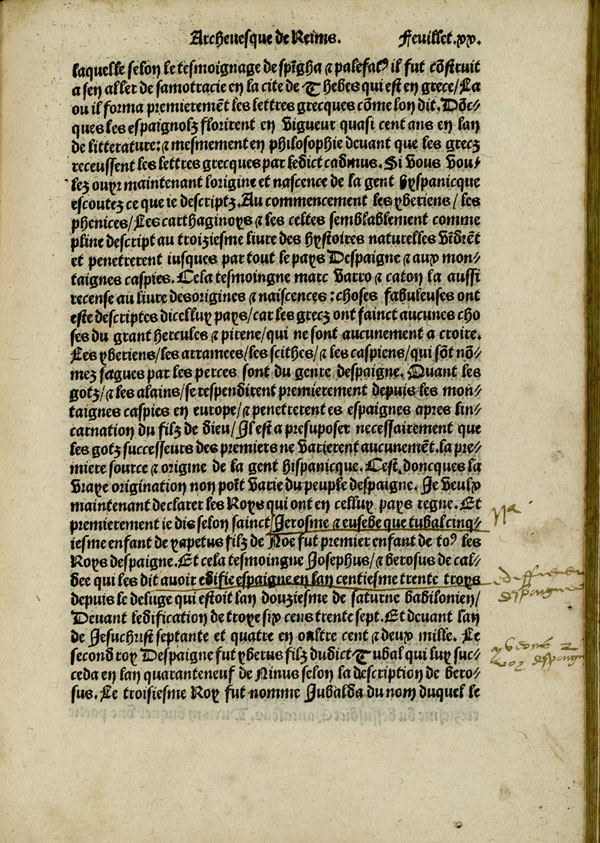 Archeuesque de Reims. Feuillet.xx.
laquelle selon le tesmoignage de spīgha & palefalꝰ il fut cōstruit
a sen aller de samotracie en la cite de Thebes qui est en grece/La
ou il forma premieremēt les lettres grecques cōme lon dit. Dōc-
ques les espaignolz florirent en vigueur quasi cent ans en lan
de litterature: & mesmement en philosophie deuant que les grecz
receussent les lettres grecques par ledict cadmus. Si vous vou-
lez ouyr maintenant lorigine et nascence de la gent hyspanicque
escoutez ce que ie descriptz. Au commencement les yberiens/ les
phenices/ Les carthaginoys & les celtes semblablement comme
pline descript au troiziesme liure des hystoires naturelles vīdrēt
et penetrerent iusques par tout le pays Despaigne & aux mon-
taignes caspies. Cela tesmoingne marc varro & caton la aussi
recense au liure des origines & naiscences: choses fabuleuses ont
este descriptes dicelluy pays/ car les grecz ont fainct aucunes cho
ses du grant hercules & pirene/ qui ne sont aucunement a croire.
Les yberiens/ les arramees/ les scithes/ & les caspiens/ qui sōt nō-
mez sagues par les perces sont du genre despaigne. Quant les
gotz/ & les alains/ se respendirent premierement depuis les mon-
taignes caspies en europe/ & penetrerent es espaignes apres lin-
carnation du filz de dieu/ Il est a presuposer necessairement que
les gotz successeurs des premiers ne varierent aucunemēt. la pre-
miere source & origine de la gent hispanicque. Cest doncques la
vraye origination non poīt varie du peuple despaigne. Je veulx
maintenant declarer les Roys qui ont en celluy pays regne. Et
premierement ie dis selon sainct Jerosme & eusebe que tubal cinq-
iesme enfant de yapetus filz de Noe fut premier enfant de toꝰ les
Roys despaigne. Et cela tesmoingne Josephus/ & berosus de cal-
dee qui les dit auoir edifie espaigne en lan centiesme trente troys
depuis le deluge qui estoit lan douziesme de saturne babilonien/
Deuant ledification de troye six cens trente sept. Et deuant lan
de Jesuchrist septante et quatre en oultre cent & deux mille. Le
second roy Despaigne fut yberus filz dudict Tubal qui luy suc-
ceda en lan quaranteneuf de Ninus selon la description de bero-
sus. Le troisiesme Roy fut nomme Jubalda du nom duquel le
Nᵃ
despaigne
yberus 2
roy despaigne